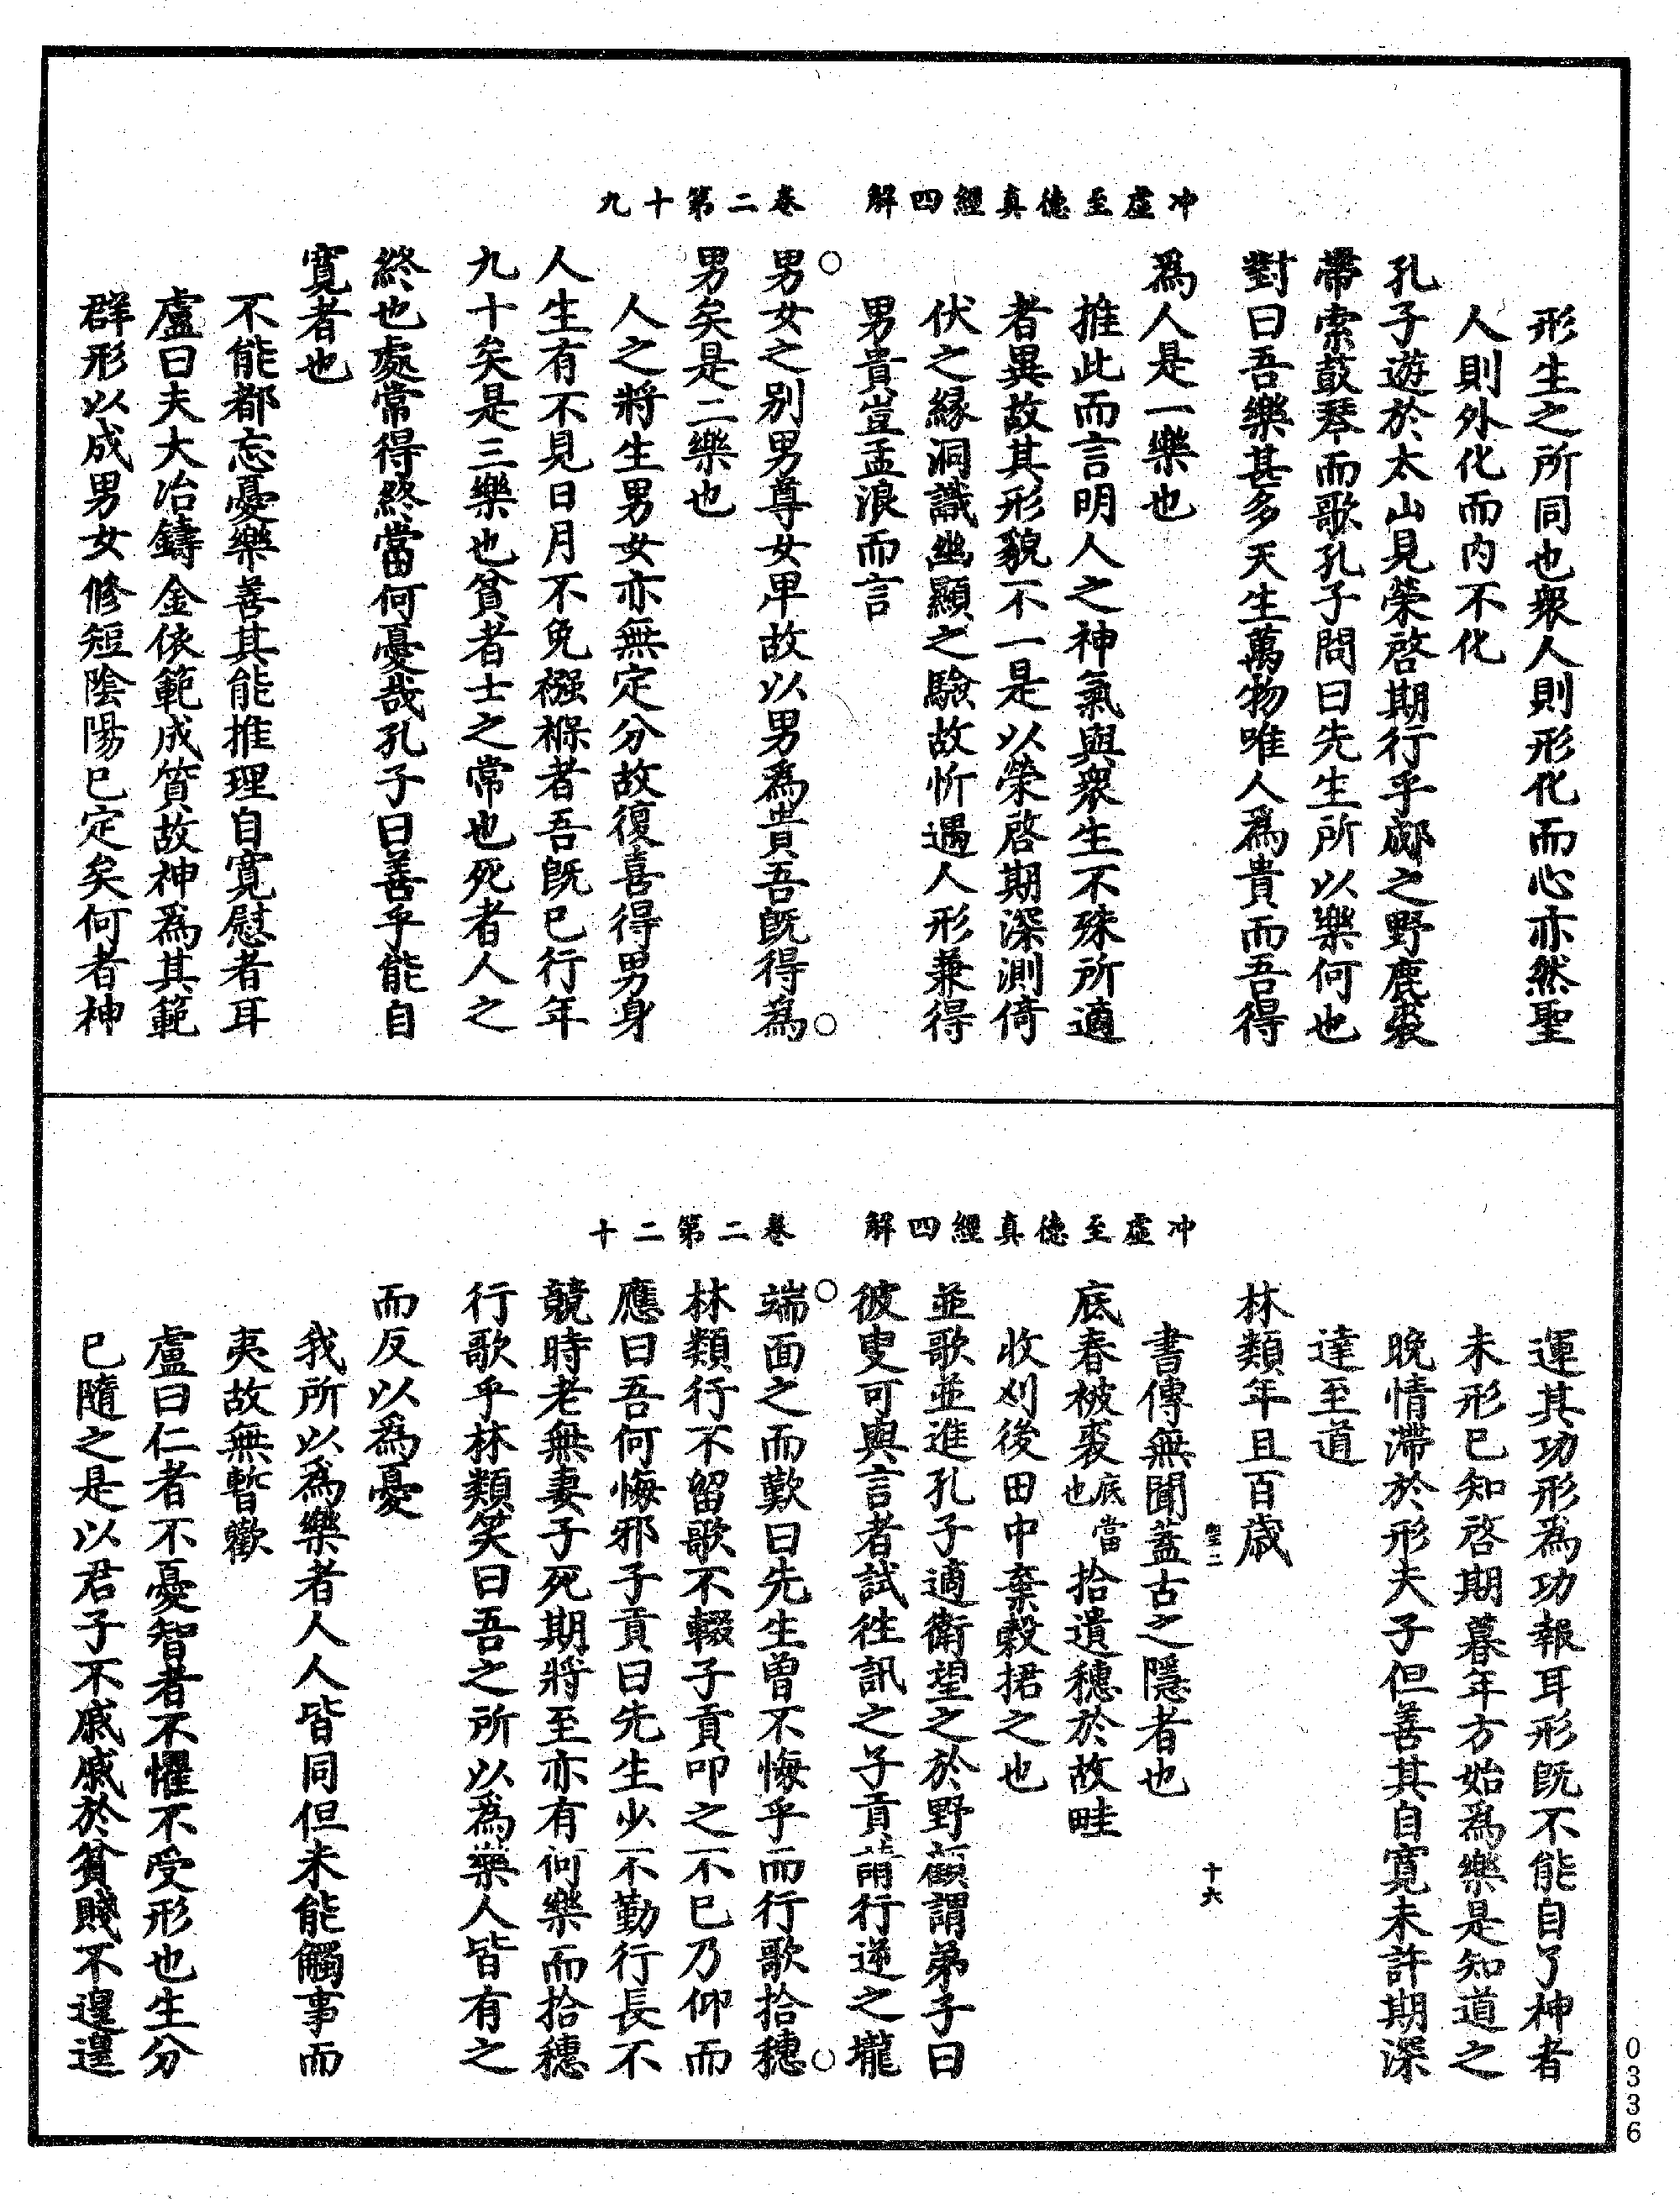 冲虛至德真經四解　卷二第十九
形生之所同也衆人則形化而心亦然聖
人則外化而内不化
孔子遊於太山見榮啓期行乎郕之野鹿裘
帶索鼓琴而歌孔子問曰先生所以樂何也
對曰吾樂甚多天生萬物唯人爲貴而吾得
爲人是一樂也
推此而言明人之神氣與衆生不殊所適
者異故其形貌不一是以榮啓期深測倚
伏之緣洞識幽顯之驗故忻遇人形兼得
男貴豈孟浪而言
○男女之别男尊女卑故以男爲貴吾旣得爲○
男矣是二樂也
人之將生男女亦無定分故復喜得男身
人生有不見日月不免襁褓者吾旣已行年
九十矣是三樂也貧者士之常也死者人之
終也處常得終當何憂哉孔子曰善乎能自
寬者也
不能都忘憂樂善其能推理自寬慰者耳
盧曰夫大冶鑄金依範成質故神爲其範
群形以成男女修短陰陽已定矣何者神
冲虛至德真經四解　卷二第二十
運其功形爲功報耳形旣不能自了神者
未形已知啓期暮年方始爲樂是知道之
晚情滯於形夫子但善其自寬未許期深
達至道
林類年且百歲
書傳無聞蓋古之隱者也
十六
底春被裘底當也拾遺穗於故畦
收刈後田中棄穀捃之也
並歌並進孔子適衛望之於野顧謂弟子曰
彼叟可與言者試往訊之子貢請行逆之壠
○端面之而歎曰先生曾不悔乎而行歌拾穗○
林類行不留歌不輟子貢叩之不已乃仰而
應曰吾何悔邪子貢曰先生少不勤行長不
競時老無妻子死期將至亦有何樂而拾穗
行歌乎林類笑曰吾之所以爲樂人皆有之
而反以爲憂
我所以爲樂者人人皆同但未能觸事而
夷故無暫歡
盧曰仁者不憂智者不懼不受形也生分
已隨之是以君子不戚戚於貧賤不遑遑
0336